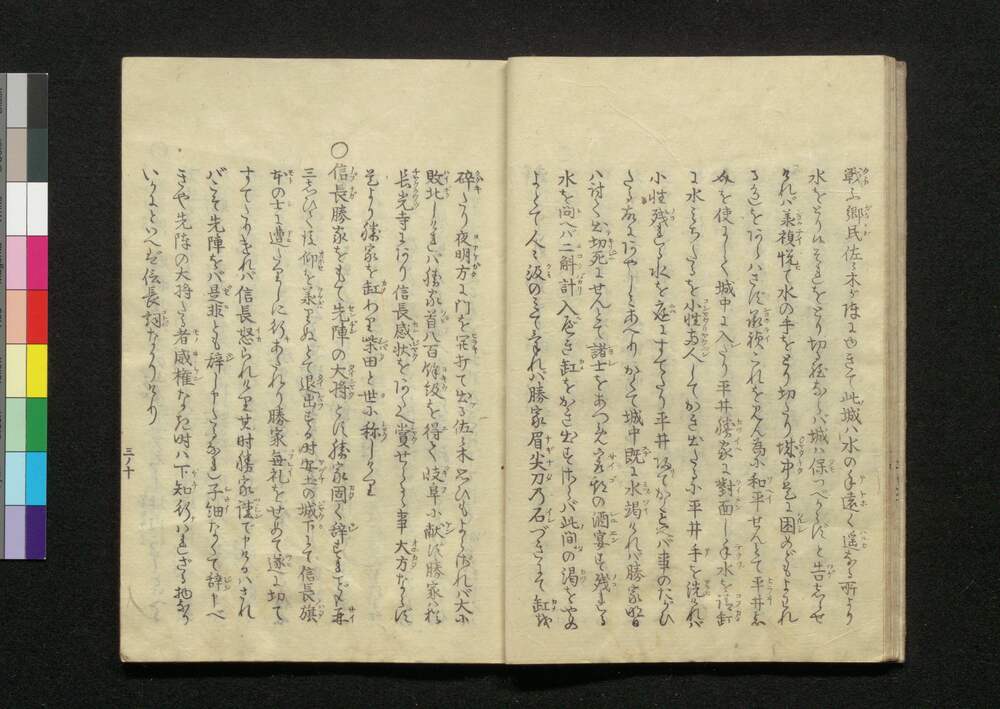 戦ふ郷民佐々木が陣にゆきて此城ハ水の手遠く遥なる所より
水をとりぬそれをとり切給ふならバ城ハ保つべからずと告しらせ
けれバ義禎悦て水の手をとり切たり城中是に困めどもよわれ
る色をあらハさず義禎これを見ん為に和平せんとて平井甚
助を使として城中に入たり平井勝家に對面し手水を請缸
に水みちたるを小性両人してかき出たるに平井手を洗けれバ
小性残れる水を庭にすてたり平井帰てかくといへバ事のたがひ
たる故にあやしミあへりかくて城中既に水竭けれバ勝家明日
ハ討て出切死にせんとて諸士をあつめ最後の酒宴す残れる
水を問へバ二斛計入べき缸をかき出すさらバ此間の渇をやめ
よとて人々に汲のませて其後勝家眉尖刀の石づきにて缸を
碎たり夜明方に門を開打て出る佐々木思ひもよらざれバ大に
敗北しけれバ勝家首八百餘級を得て岐阜に献ず勝家ハ猶
長光寺にあり信長感状をあたへ賞せらるゝ事大方ならず
是より勝家を缸わり柴田と世に称しけり
○信長勝家をもて先陣の大将とす勝家固く辞すれども再
三しひて後仰を承りぬとて退出する時安土の城下にて信長旗
本の士に遭たりしに行あたれり勝家無礼をせめて遂に切て
すてたりきけれバ信長怒られけり其時勝家謹で申けるハされ
バこそ先陣をバ是非とも辞し申たるなれ子細なくて辞すべ
きや先陣の大将たる者威権なき時ハ下知行ハれざる物なり
いかにといへど信長詞なかりけり
三ノ十